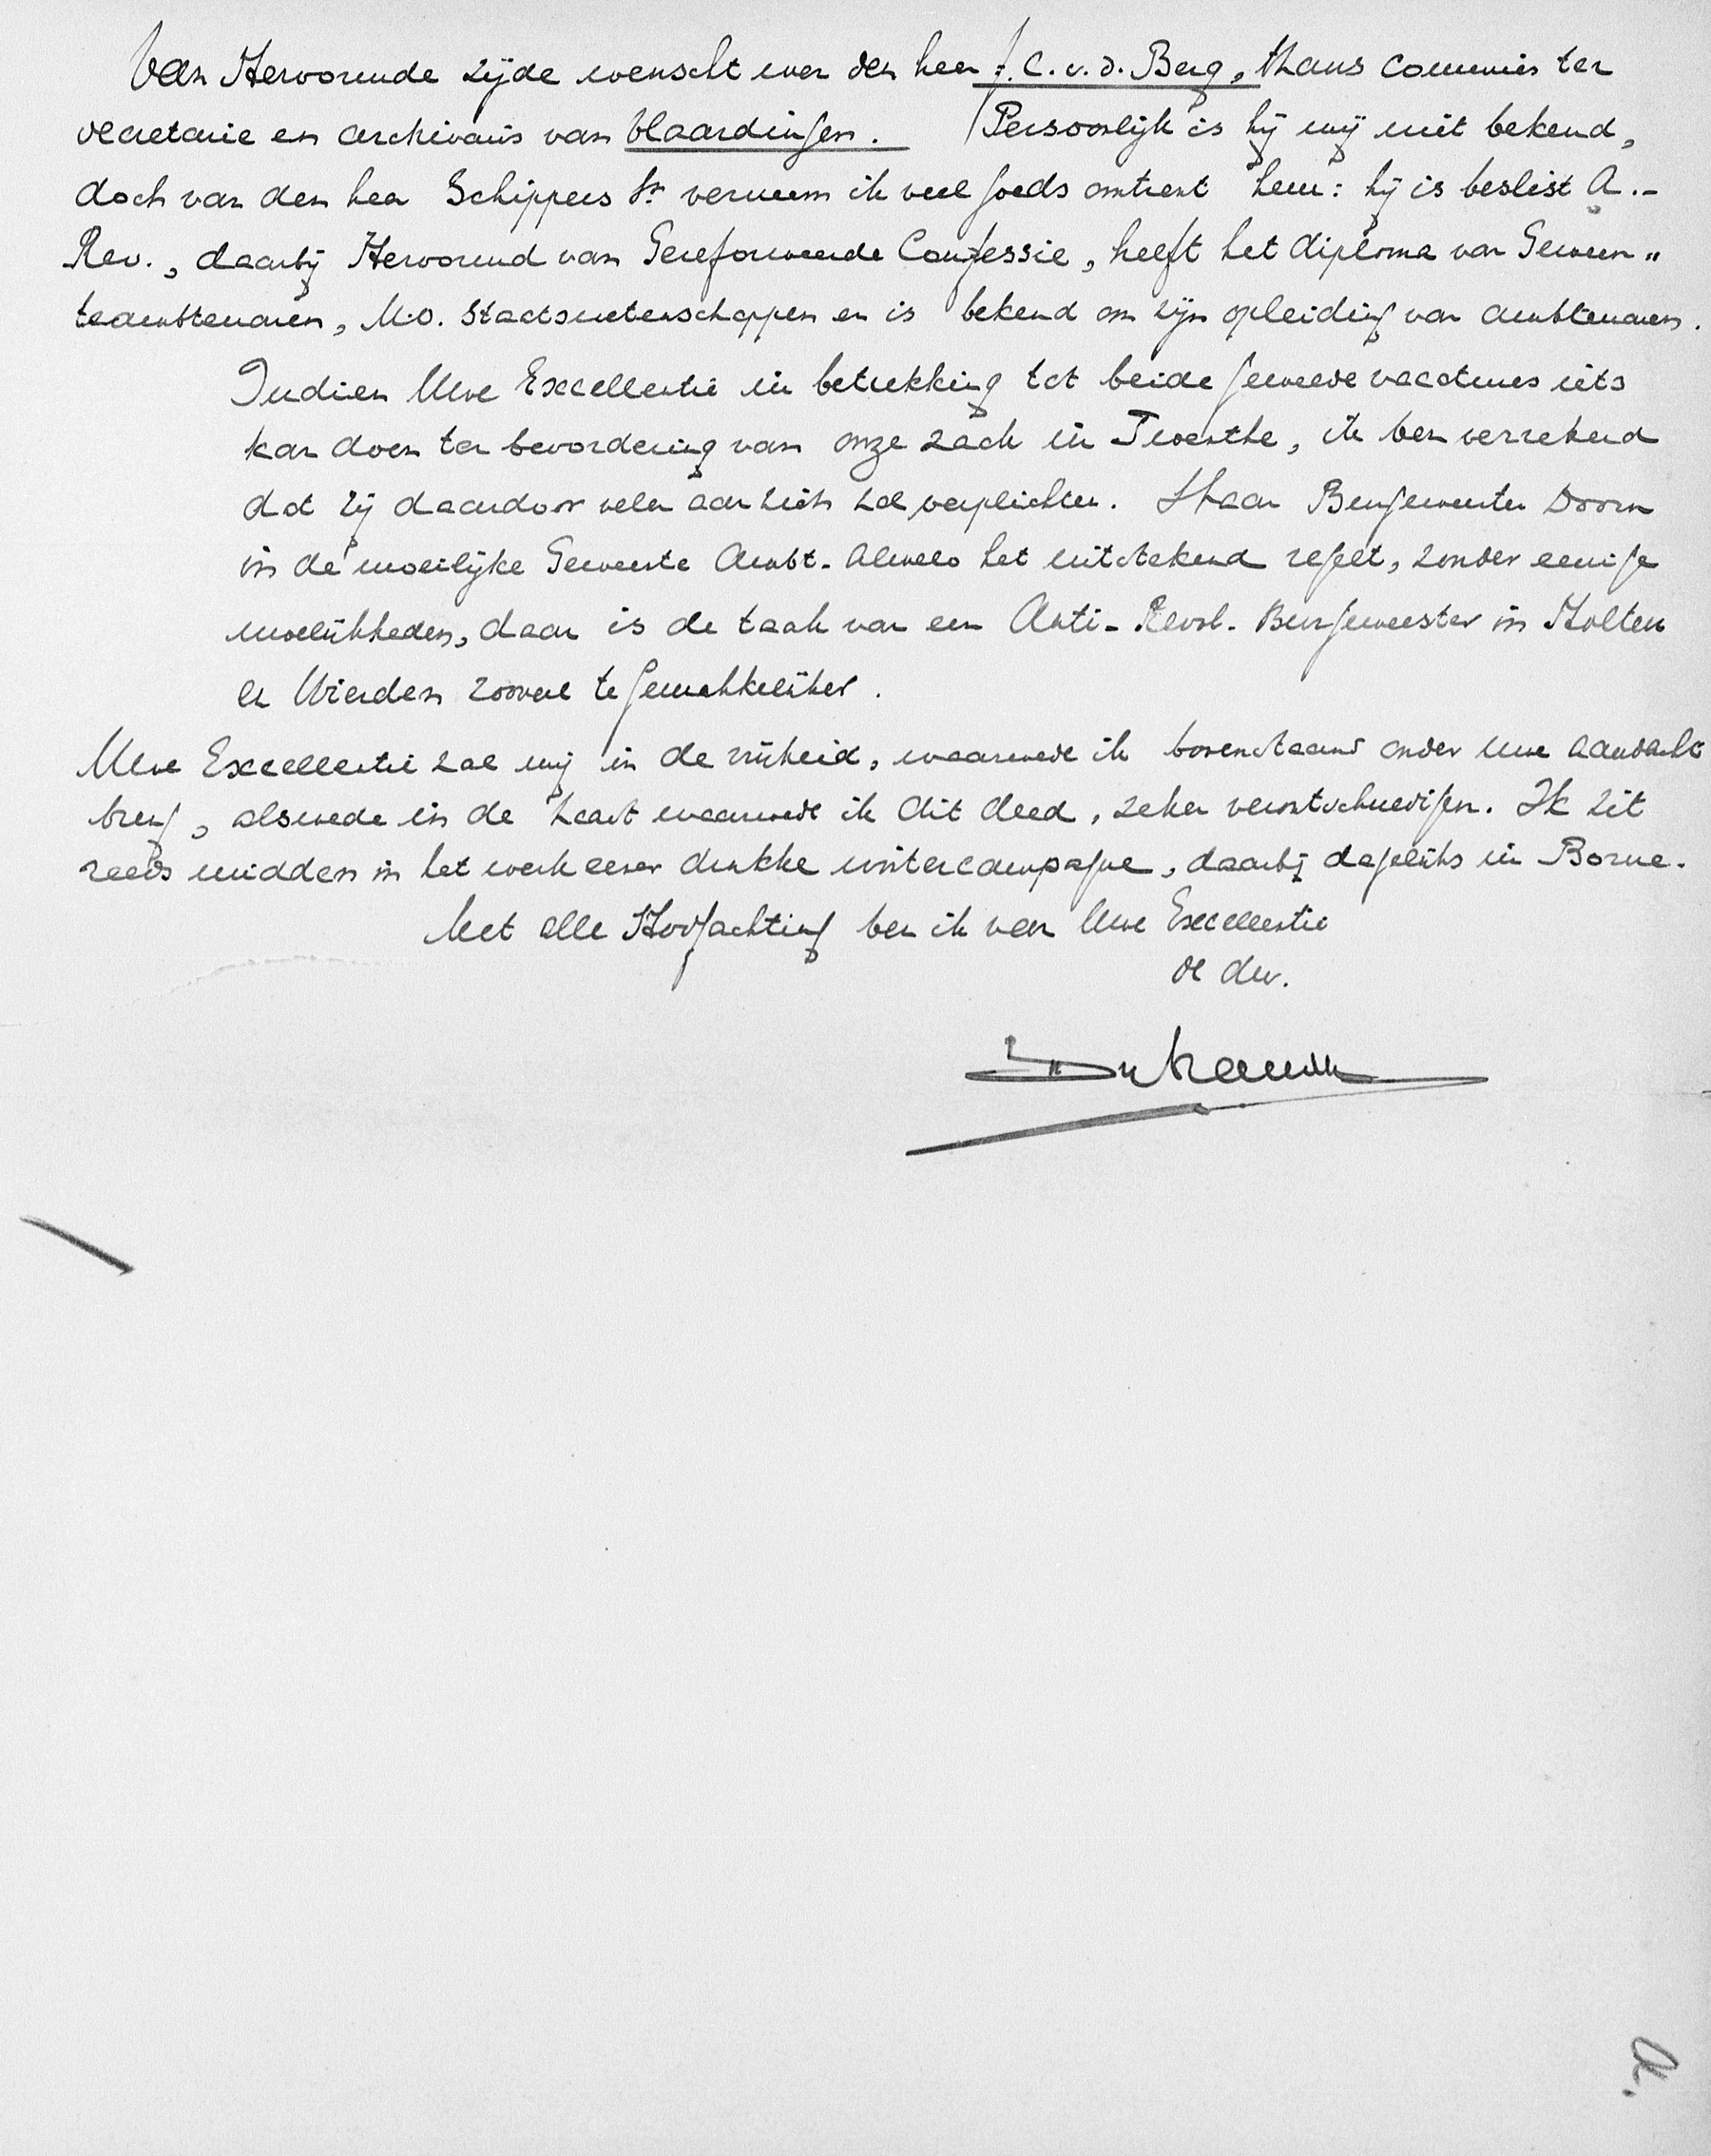 Van Hervormde zijde wenscht men den heer J. C. v. d. Berg, thans commies ter
secretarie en archivaris van Vlaardingen. Persoonlijk is hij mij niet bekend,
doch van den heer Schippers Sr verneem ik veel goeds omtrent hem: hij is beslist A.-
Rev., daarbij Hervormd van Gereformeerde Confessie, heeft het diploma van Gemeen„
teambtenaren, M.O. Staatswetenschappen en is bekend om zijn opleiding van ambtenaren.
Indien Uwe Excellentie in betrekking tot beide gemeede vacatures iets
kan doen ter bevordering van onze zaak in Twenthe, ik ben verzekerd
dat zij daardoor velen aan zich zal verplichten. Waar Burgemeester Doorn
in de moeilijke Gemeente Ambt-Almelo het uitstekend regelt, zonder eenige
moeilijkheden, daar is de taak van een Anti-Revol. Burgemeester in Holten
en Wierden zooveel te gemakkelijker.
Uwe Excellentie zal mij in de vrijheid, waarmede ik bovenstaand onder uwe aandacht
breng, alsmede in de haast waarmede ik dit deed, zeker verontschuldigen. Ik zit
reeds midden in het werk eener drukke wintercampagne, daarbij dagelijks in Borne.
Met alle Hoogachting ben ik van Uwe Excellentie
de dw.
A.